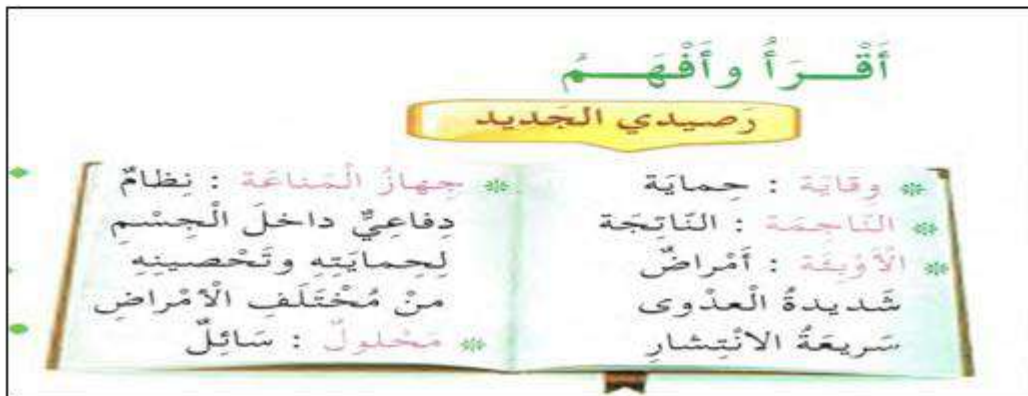 أَقْرَأُ وأَفْهَمُ
رَصيدي الجَديد
* وِقايَة : حِمايَة
* النَاجِمَة : النَاتِجَة
* الْأَوْبِئَة : أَمْراضٌ
شَديدةُ الْعدْوى
سَريعَةُ الانْتِشارِ
* جِهازُ الْمَناعَة : نِظامٌ
دِفاعِيٌّ داخلَ الْجِسْمِ
لِحِمايَتِهِ وتَحْصينِهِ
منْ مُخْتَلَفِ الْأمْراضِ
* مَحْلولٌ : سَائِلٌ